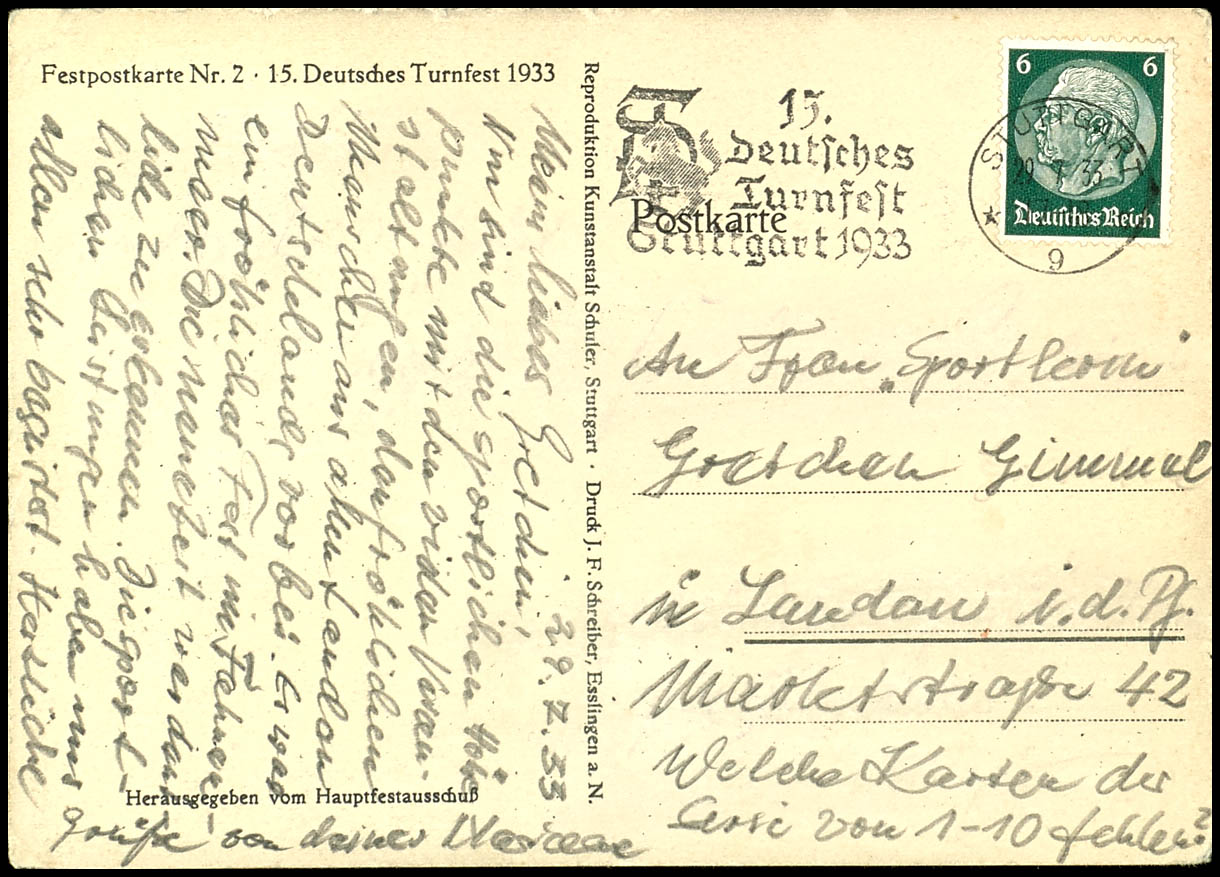 Festpostkarte Nr. 2 · 15. Deutsches Turnfest 1933
29.7.33
Mein liebes Gretchen!
Nun sind die sportlichen Höhe
punkte mit den vielen Veran-
staltungen, den fröhlichen
Menschen aus allen Landen
Deutschlands vorbei. Es war
ein fröhliches Fest im Fahnen
meer. Die
zu Die sport-
lichen Leistungen haben uns
allen sehr begeistert. Herzliche
Grüße von deiner
Herausgegeben vom Hauptfestausschuß
Reproduktion Kunstanstalt Schuler, Stuttgart · Druck J. F. Schreiber, Esslingen a. N.
15.
Deutsches
Turnfest
Stuttgart 1933
Postkarte
STUTTGART
33
9
6 6
Deutsches Reich
An Frau „Sportlerin"
Gretchen Gimmel
in Landau i. d. Pf.
Marktstraße 42
Welche Karten der
Serie von 1-10 fehlen?